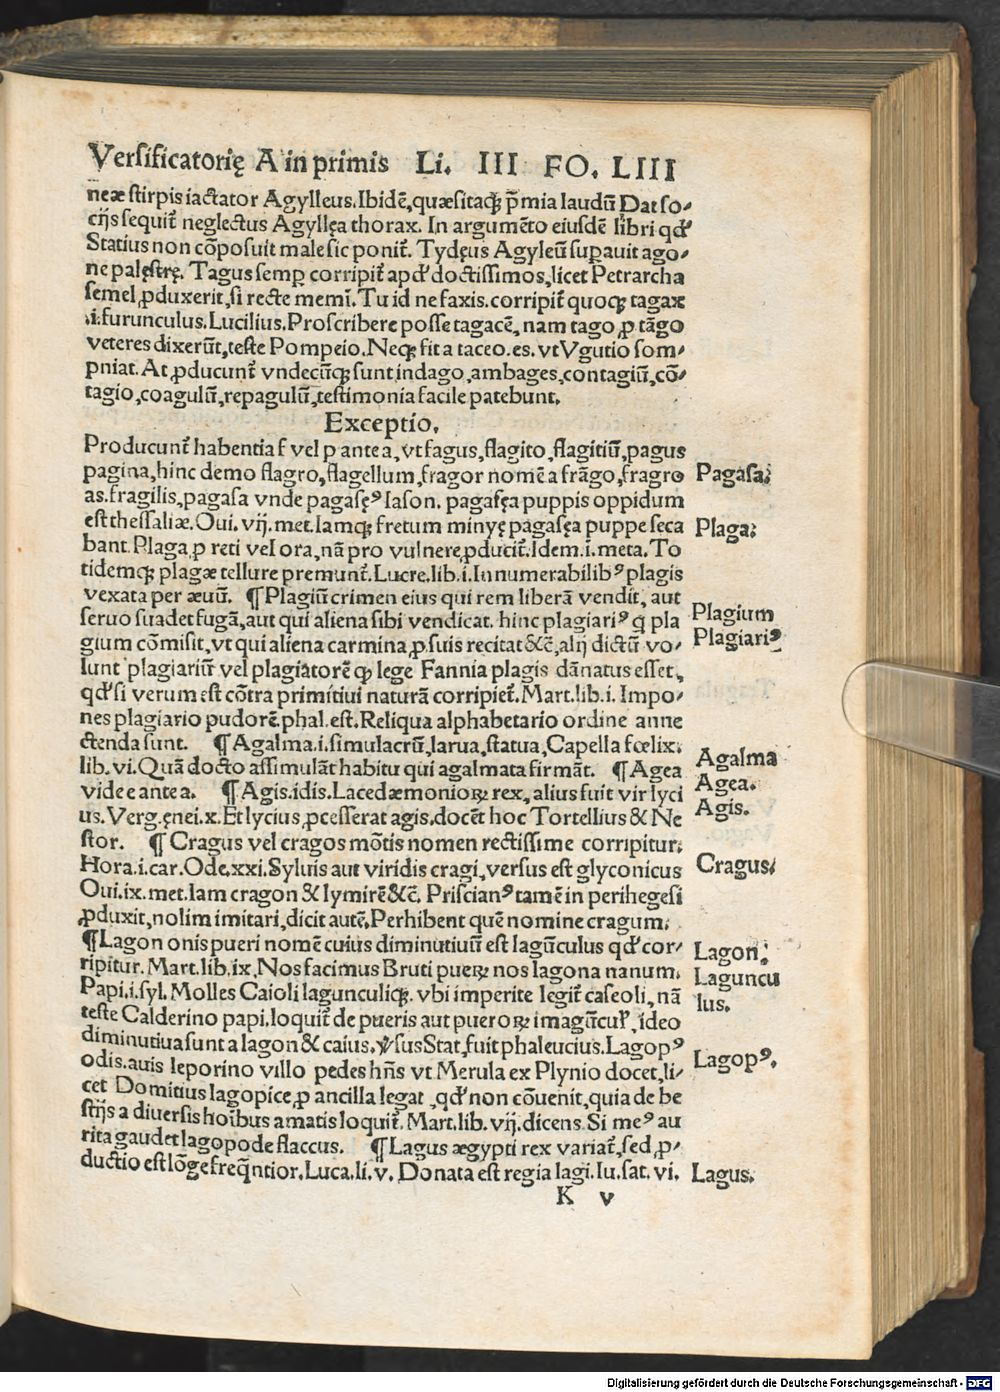 Versificatorię A in primis Li. III FO. LIII
neæ stirpis iactator Agylleus. Ibidē, quæsitaq; p̄mia laudū Dat so-
cijs sequit̄ neglectus Agyllęa thorax. In argumēto eiusdē libri qđ
Statius non cōposuit male sic ponit̄. Tydęus Agyleū suꝑauit ago-
ne palęstrę. Tagus semꝑ corripit̄ apđ doctissimos, licet Petrarcha
semel ꝓduxerit, si recte memī. Tu id ne faxis. corripit̄ quoq; tagax
.i. furunculus. Lucilius. Proscribere posse tagacē, nam tago ꝓ tāgo
veteres dixerūt, teste Pompeio. Neq; fit a taceo. es. vt Vgutio som-
pniat. At ꝓducunt̄ vndecūq; sunt indago, ambages, contagiū, cō-
tagio, coagulū, repagulū, testimonia facile patebunt.
Exceptio.
Producunt̄ habentia f vel p ante a, vt fagus, flagito, flagitiū, pagus
pagina, hinc demo flagro, flagellum, fragor nomē a frāgo, fragro
as. fragilis, pagasa vnde pagasęꝰ Iason. pagasęa puppis oppidum
est thessaliæ. Oui. vij. met. Iamq; fretum minyę pagasęa puppe seca
bant. Plaga ꝓ reti vel ora, nā pro vulnere ꝓducit̄. Idem .i. meta. To
tidemq; plagæ tellure premunt̄. Lucre. lib. i. Innumerabilibꝰ plagis
vexata per æuū. ¶ Plagiū crimen eius qui rem liberā vendit, aut
seruo suadet fugā, aut qui aliena sibi vendicat. hinc plagiariꝰ q̇ pla
gium cōmisit, vt qui aliena carmina ꝓ suis recitat &c̄, alij dictū vo-
lunt plagiariū vel plagiatorē q; lege Fannia plagis dānatus esset,
qđ si verum est cōtra primitiui naturā corripiet̄. Mart. lib. i. Impo-
nes plagiario pudorē. phal. est. Reliqua alphabetario ordine anne
ctenda sunt. ¶ Agalma .i. simulacrū, larua, statua, Capella fœlix.
lib. vi. Quā docto assimulāt habitu qui agalmata firmāt. ¶ Agea
vide e ante a. ¶ Agis. idis. Lacedæmonioꝝ rex, alius fuit vir lyci
us. Verg. ęnei. x. Et lycius ꝓcesserat agis. docēt hoc Tortellius & Ne
stor. ¶ Cragus vel cragos mōtis nomen rectissime corripitur.
Hora. i. car. Ode. xxi. Syluis aut viridis cragi, versus est glyconicus
Oui. ix. met. Iam cragon & lymirē &c̄. Priscianꝰ tamē in perihegesi
ꝓduxit, nolim imitari, dicit autē. Perhibent quē nomine cragum.
¶ Lagon onis pueri nomē cuius diminutiuū est lagūculus qđ cor-
ripitur. Mart. lib. ix. Nos facimus Bruti pueꝝ nos lagona nanum.
Papi. i. syl. Molles Caioli lagunculiq;. vbi imperite legit̄ caseoli, nā
teste Calderino papi. loquit̄ de pueris aut pueroꝝ imagūcul', ideo
diminutiua sunt a lagon & caius. ꝟsus Stat. fuit phaleucius. Lagopꝰ
odis. auis leporino villo pedes hn̄s vt Merula ex Plynio docet, li-
cet Domitius lagopice ꝓ ancilla legat, qđ non cōuenit, quia de be
stijs a diuersis hoībus amatis loquit̄. Mart. lib. vij. dicens. Si meꝰ au
rita gaudet lagopode flaccus. ¶ Lagus ægypti rex variat̄, sed ꝓ-
ductio est lōge freq̄ntior. Luca. li. v. Donata est regia lagi. Iu. sat. vi.
K v
Pagasa.
Plaga.
Plagium
Plagiariꝰ
Agalma
Agea.
Agis.
Cragus.
Lagon.
Laguncu
lus.
Lagopꝰ.
Lagus.
Digitalisierung gefördert durch die Deutsche Forschungsgemeinschaft - DFG